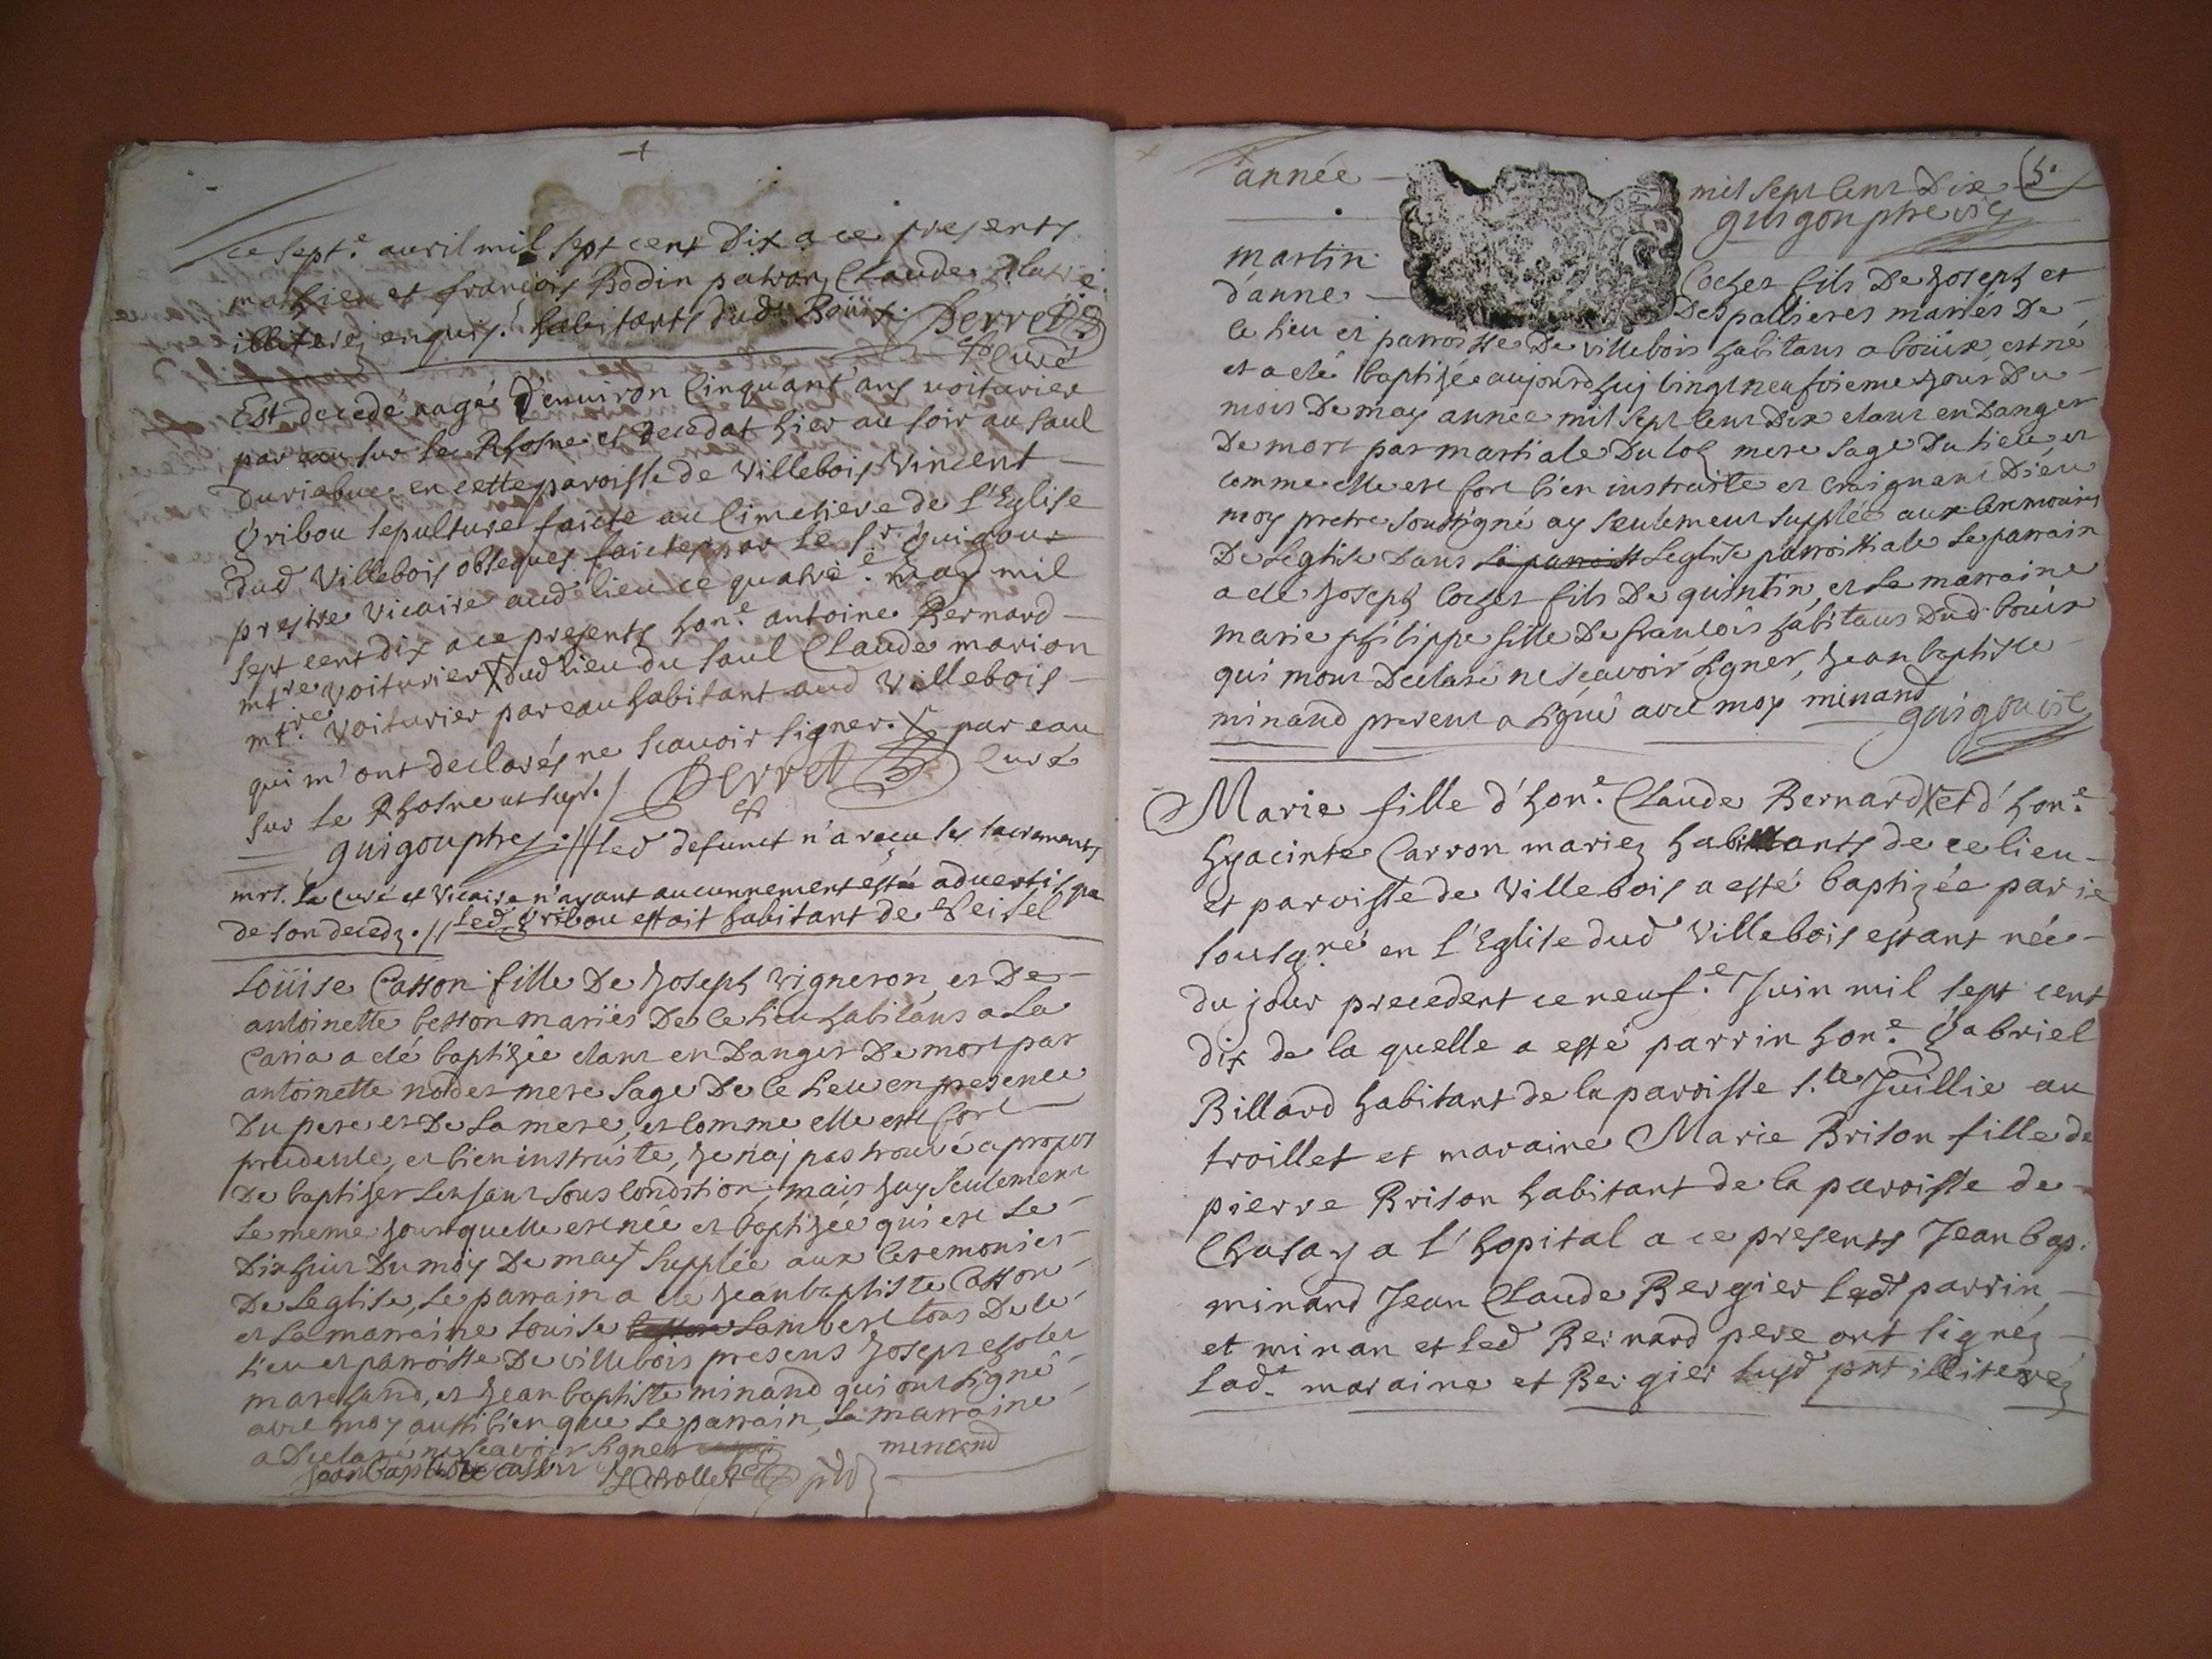 ce sept.e auril mil sept cent dix a ce presents
mathieu et françois Bodin patron, Claude
illiterez enquis. habitants dud. Boüix. Perret
Curé
Est decedé aagé d'enuiron Cinquant' ans uoiturier
par eau sur le Rhosne et decedat hier au soir au Saul
en cette paroisse de Villebois Vincent
Gribou sepulture faicte au Cimetiere de l'Eglise
dud Villebois obseques faictes par le Sr. Guigoux
prestre Vicaire aud lieu ce quatrie.e may mil
sept cent dix a ce presents hon.e antoine Bernard
mtre voiturier X dud lieu du Saul Claude marion
mtre. voiturier par eau habitant aud Villebois
qui m'ont declarés ne scauoir signer. X par eau
sur le Rhosne ut supr. / Perret Curé
et
guigou ptre. // led defunct n'a reçu les sacrements
mrs. le Curé et Vicaire n'ayant aucunnement esté aduertis
de son decedz. // led. Gribou estoit habitant de Seissel
Loüise Casson fille De Joseph vigneron, et De
antoinette besson mariés De ce lieu habitans a La
Caria a eté baptisée etant en Danger De mort par
antoinette nodet mere Sage De ce Lieu en presence
Du pere et De La mere, et comme elle est fort
prudente, et bien instruite, je n'aj pas trouvé a propos
De baptiser Lenfant sous condition, mais jay seulement
le meme jour quelle est née et baptisée qui est Le
Dixhuit Du moy De may supplée aux Ceremonies
De Leglise, Le parrain a ete Jean baptiste Casson
et La marraine Louise Lambert tous De ce
lieu et parroisse De villebois presens Joseph
marchand, et Jean baptiste minand qui ont signé
avec moy aussi bien que Le parrain, La marraine
a Declaré ne sçavoir signer minand
Jean Baptiste casson
année mil Sept Cent Dix 5.
guigou ptre vic
martin Cochet fils De Joseph et
d'anne Despallieres mariés De
ce lieu et parroisse De villebois habitans a boüix, est né
et a eté baptisée aujourdhuj vingt neufvieme jour Du
mois De may année mil Sept Cent Dix etant en Danger
De mort par martiale Duloz mere Sage Du lieu et
comme elle est fort bien instruite et craignant Dieu
moy pretre soussigné ay seulement supplée aux ceremonies
De Leglise Dans Leglise parroissiale Le parrain
a ete Joseph Cochet fils De quintin, et La marraine
marie philippe fille De françois habitans Dud. boüix
qui mont Declaré ne sçavoir signer, Jean baptiste
minand present a signé avec moy minand
guigou vic
Marie fille d'hon.e Claude Bernard X et d'hon.e
hyacinte Carron mariez habitants de ce lieu
et paroisse de Villebois a esté baptizée par je
sousg.né en l'Eglise dud Villebois estant née
du jour precedent ce neuf.e Juin mil sept cent
dix de la quelle a esté parrin hon.e Gabriel
Billard habitant de la paroisse S.te Juillie au
troillet et maraine Marie Brison fille de
pierre Brison habitant de la paroisse de
Chasay a l'hopital a ce presents Jean bap.
minand Jean Claude Bergier led parrin
et minan et led Bernard pere ont signéz
Lad. maraine et Bergier susd pnt illiterez